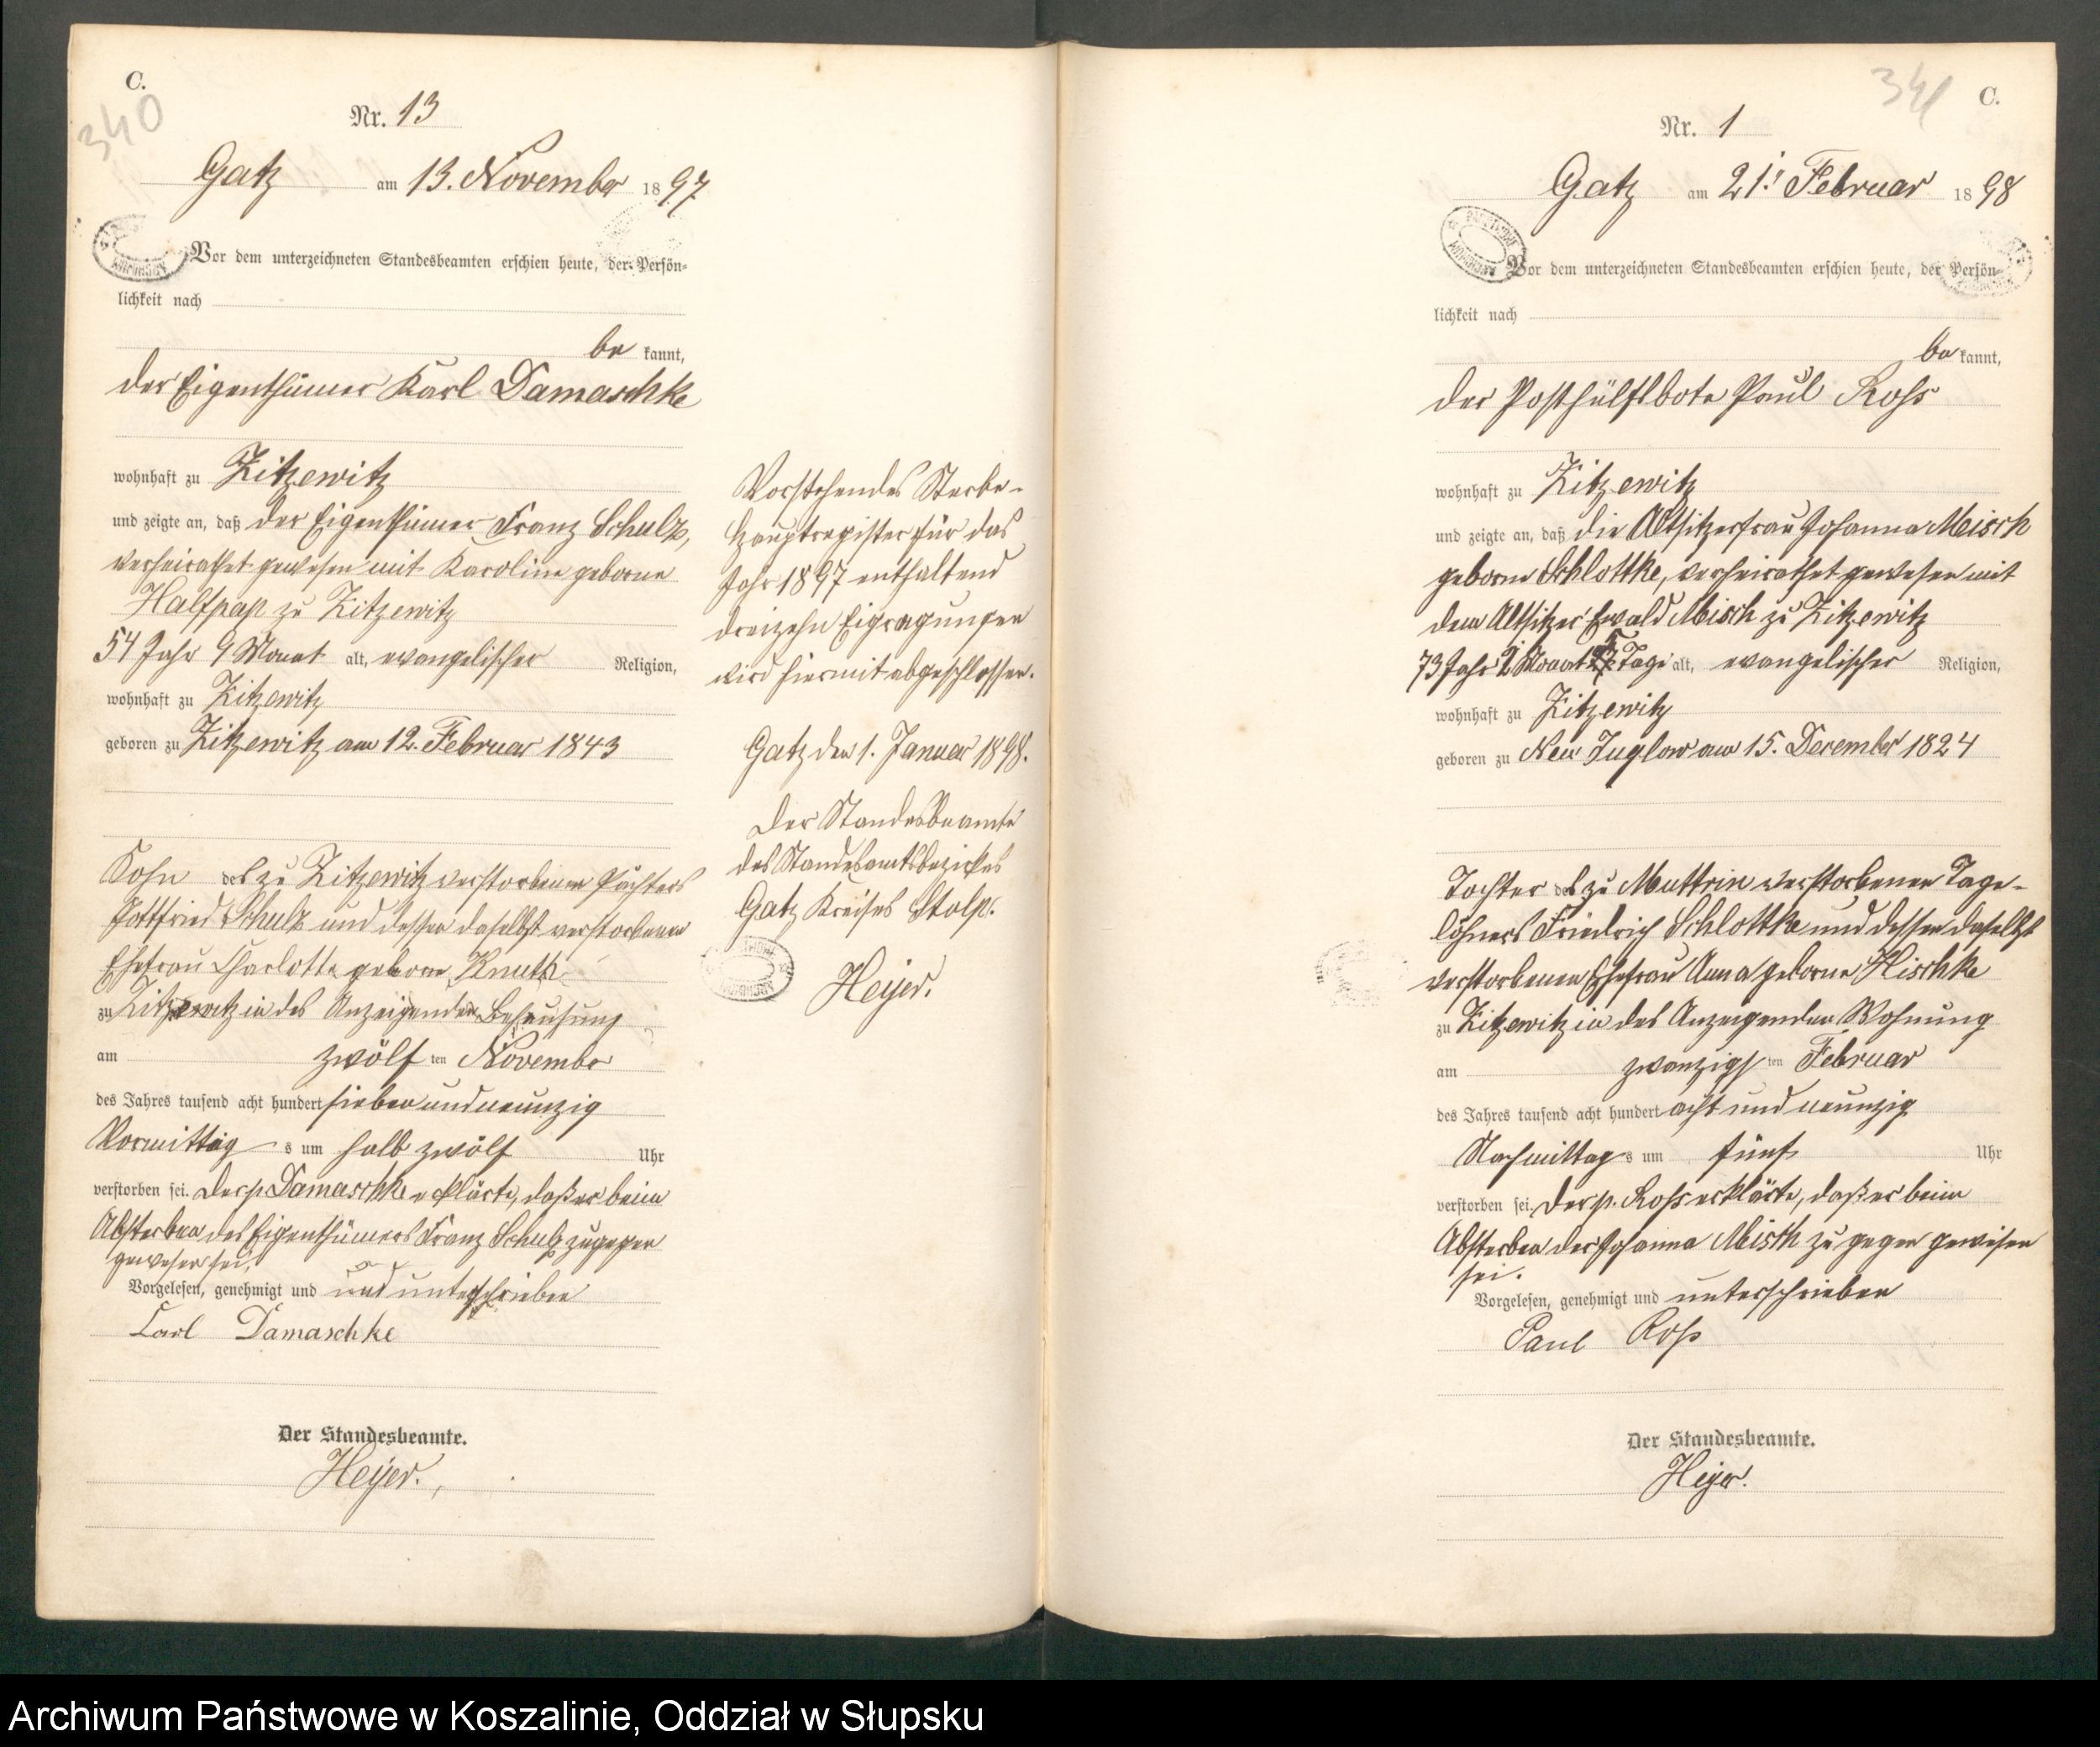 C.
340
Nr. 13
Gatz am 13. November 1897
Vor dem unterzeichneten Standesbeamten erschien heute, der Persön-
lichkeit nach
be kannt,
der Eigenthümer Karl Damaschke
wohnhaft zu Zitzewitz
und zeigte an, daß der Eigenthümer Franz Schulz,
verheirathet gewesen mit Karoline geborne
Halfpap zu Zitzewitz
54 Jahr 9 Monat alt, evangelischer Religion,
wohnhaft zu Zitzewitz
geboren zu Zitzewitz am 12. Februar 1843
Sohn des zu Zitzewitz verstorbenen Pächters
Gottfried Schulz und dessen daselbst verstorbenen
Ehefrau Charlotte geborne Knuth
zu Zitzewitz in des Anzeigenden Behausung
am zwölf ten November
des Jahres tausend acht hundert sieben und neunzig
Vormittag s um halb zwölf Uhr
verstorben sei. Der p. Damaschke erklärte, daß er beim
Absterben des Eigenthümers Franz Schulz zugegen
gewesen sei.
Vorgelesen, genehmigt und und unterschrieben
Carl Damaschke
Der Standesbeamte.
Heyer.
Vorstehendes Sterbe-
Hauptregister für das
Jahr 1897 enthaltend
dreizehn Eigragungen
wird hiermit abgeschlossen.
Gatz den 1. Januar 1898.
Der Standesbeamte
des Standesamtsbezirkes
Gatz Kreises Stolp.
Heyer.
341
C.
Nr. 1
Gatz am 21. Februar 1898
Vor dem unterzeichneten Standesbeamten erschien heute, der Persön-
lichkeit nach
be kannt,
der Posthülfsbote Paul Roß
wohnhaft zu Zitzewitz
und zeigte an, daß die Altsitzerfrau Johanna Meisch
geborne Schlottke, verheirathet gewesen mit
dem Altsitzer Ewald Misch zu Zitzewitz
73 Jahr 2 Monat 5 Tage alt, evangelischer Religion,
wohnhaft zu Zitzewitz
geboren zu Neu Juglow am 15. December 1824
Tochter des zu Muttrin verstorbenen Tage-
löhners Friedrich Schlottke und dessen daselbst
verstorbenen Ehefrau Anna geborne Hischke
zu Zitzewitz in des Anzeigenden Wohnung
am zwanzigs ten Februar
des Jahres tausend acht hundert acht und neunzig
Nachmittag s um fünf Uhr
verstorben sei. Der p. Roß erklärte, daß er beim
Absterben der Johanna Misch zu gegen gewesen
sei.
Vorgelesen, genehmigt und unterschrieben
Paul Roß
Der Standesbeamte.
Heyer.
Archiwum Państwowe w Koszalinie, Oddział w Słupsku